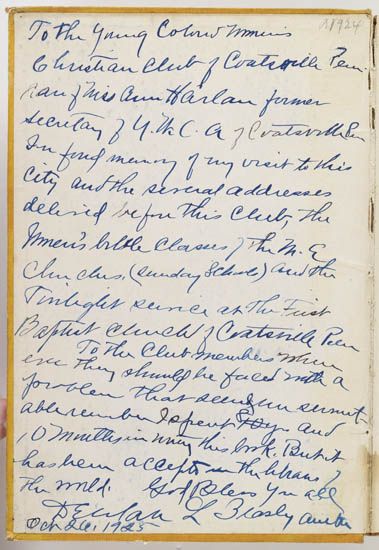 To the Young Colord Women's
Christian Club of Coatsville Penn.
of Miss Ann Harlan former
secretary of Y.W.C.A of Coatsville Pen
In fond memory of my visit to this
city and the several addresses
delived before this Club, the
Women's bible classes of the M.E
Churches (Sunday Schools) and the
Twilight service at the First
Baptist Church of Coatsville Penn
To the Club members when
ever they should be faced with a
problem that seems
able remember I spent 8 years and
10 months in writing this book. But it
has been accepted in the librarys of
the world. God Bless you all
Delilah L. Beasley author
Oct 26, 1925